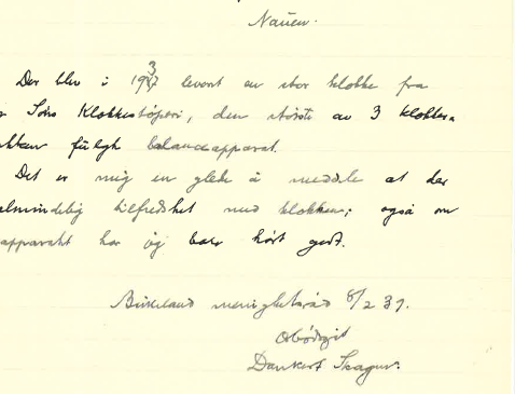 Nauen.
Der blev i 1937 levert en stor klokke fra
Sørs Klokkestøperi, den største av 3 klokker.
fulgte balanceapparat.
Det er mig en glede å meddele at der
almindelig tilfredshet med klokken; også om
apparatet har jeg bare hørt godt.
Birkeland menighetsråd 8/2 39.
Dankert Skagen.